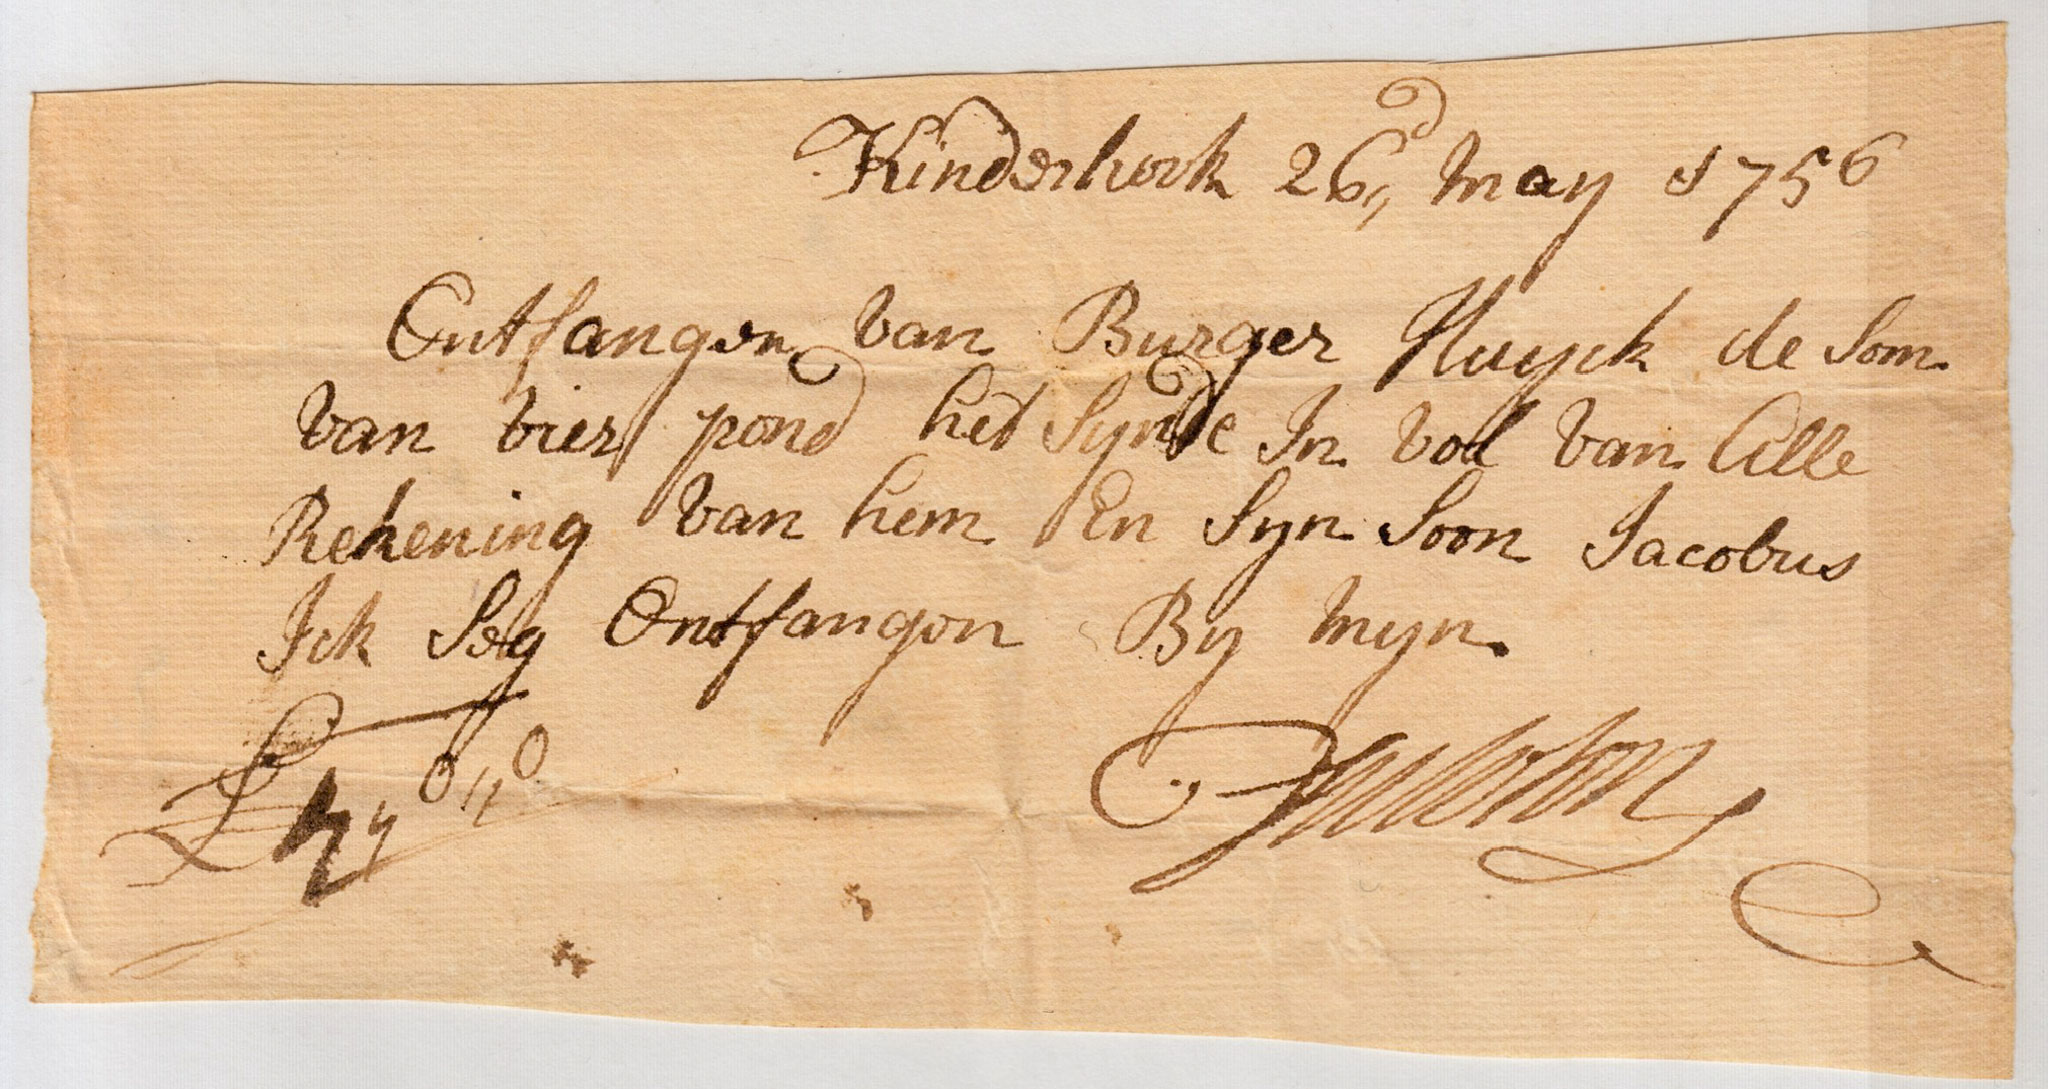 Kinderhook 26d,, May 1756
Ontfangen van Burger Huyck de Som
van vier pond het Synde In vol van Alle
Rekening van hem En Syn Soon Jacobus
Ick Seg Ontfangen By Myn
£4,,0,,0